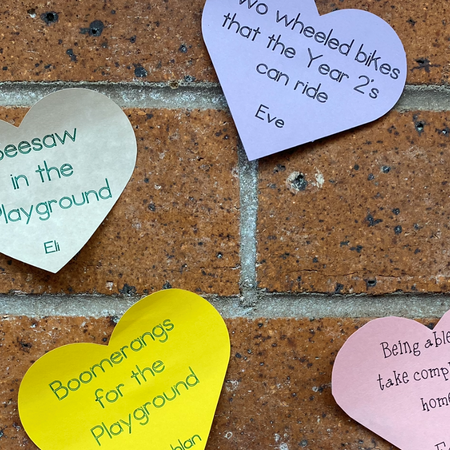 wo wheeled bikes
that the Year 2's
can ride
Eve
eesaw
in the
Playground
Eli
Boomerangs
for the
Playground
hlan
Being able
take comp
home